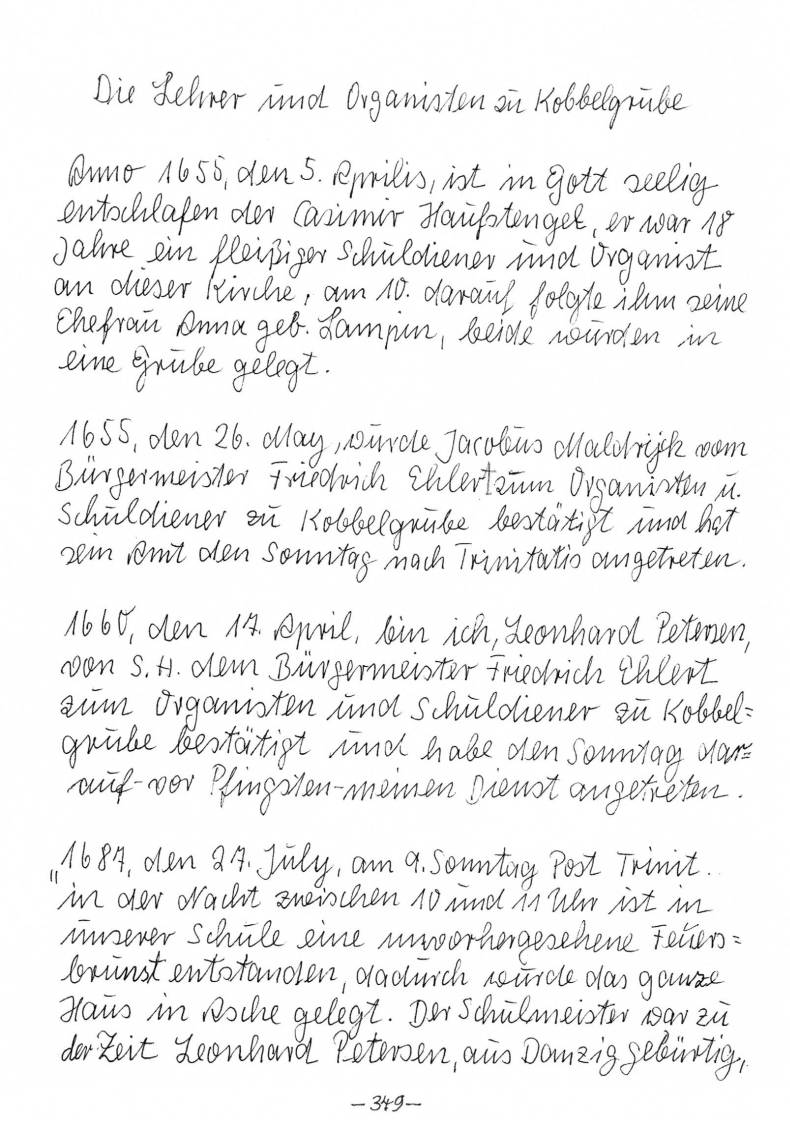 Die Lehrer und Organisten zu Kobbelgrube
Anno 1655, den 5. Aprilis, ist in Gott seelig
entschlafen der Casimir Haufstengel, er war 18
Jahre ein fleißiger Schuldiener und Organist
an dieser Kirche, am 10. darauf folgte ihm seine
Ehefrau Anna geb. Lampin, beide wurden in
eine Grube gelegt.
1655, den 26. May, wurde Jacobus Maldrijk vom
Bürgermeister Friedrich Ehlert zum Organisten u.
Schuldiener zu Kobbelgrube bestätigt und hat
sein Amt den Sonntag nach Trinitatis angetreten.
1660, den 17. April, bin ich, Leonhard Petersen,
von S.H. dem Bürgermeister Friedrich Ehlert
zum Organisten und Schuldiener zu Kobbel=
grube bestätigt und habe den Sonntag dar=
auf-vor Pfingsten-meinen Dienst angetreten.
"1687, den 27. July, am 9. Sonntag Post Trinit.
in der Nacht zwischen 10 und 11 Uhr ist in
unserer Schule eine unvorhergesehene Feuers=
brunst entstanden, dadurch wurde das ganze
Haus in Asche gelegt. Der Schulmeister war zu
der Zeit Leonhard Petersen, aus Danzig gebürtig,
-349-